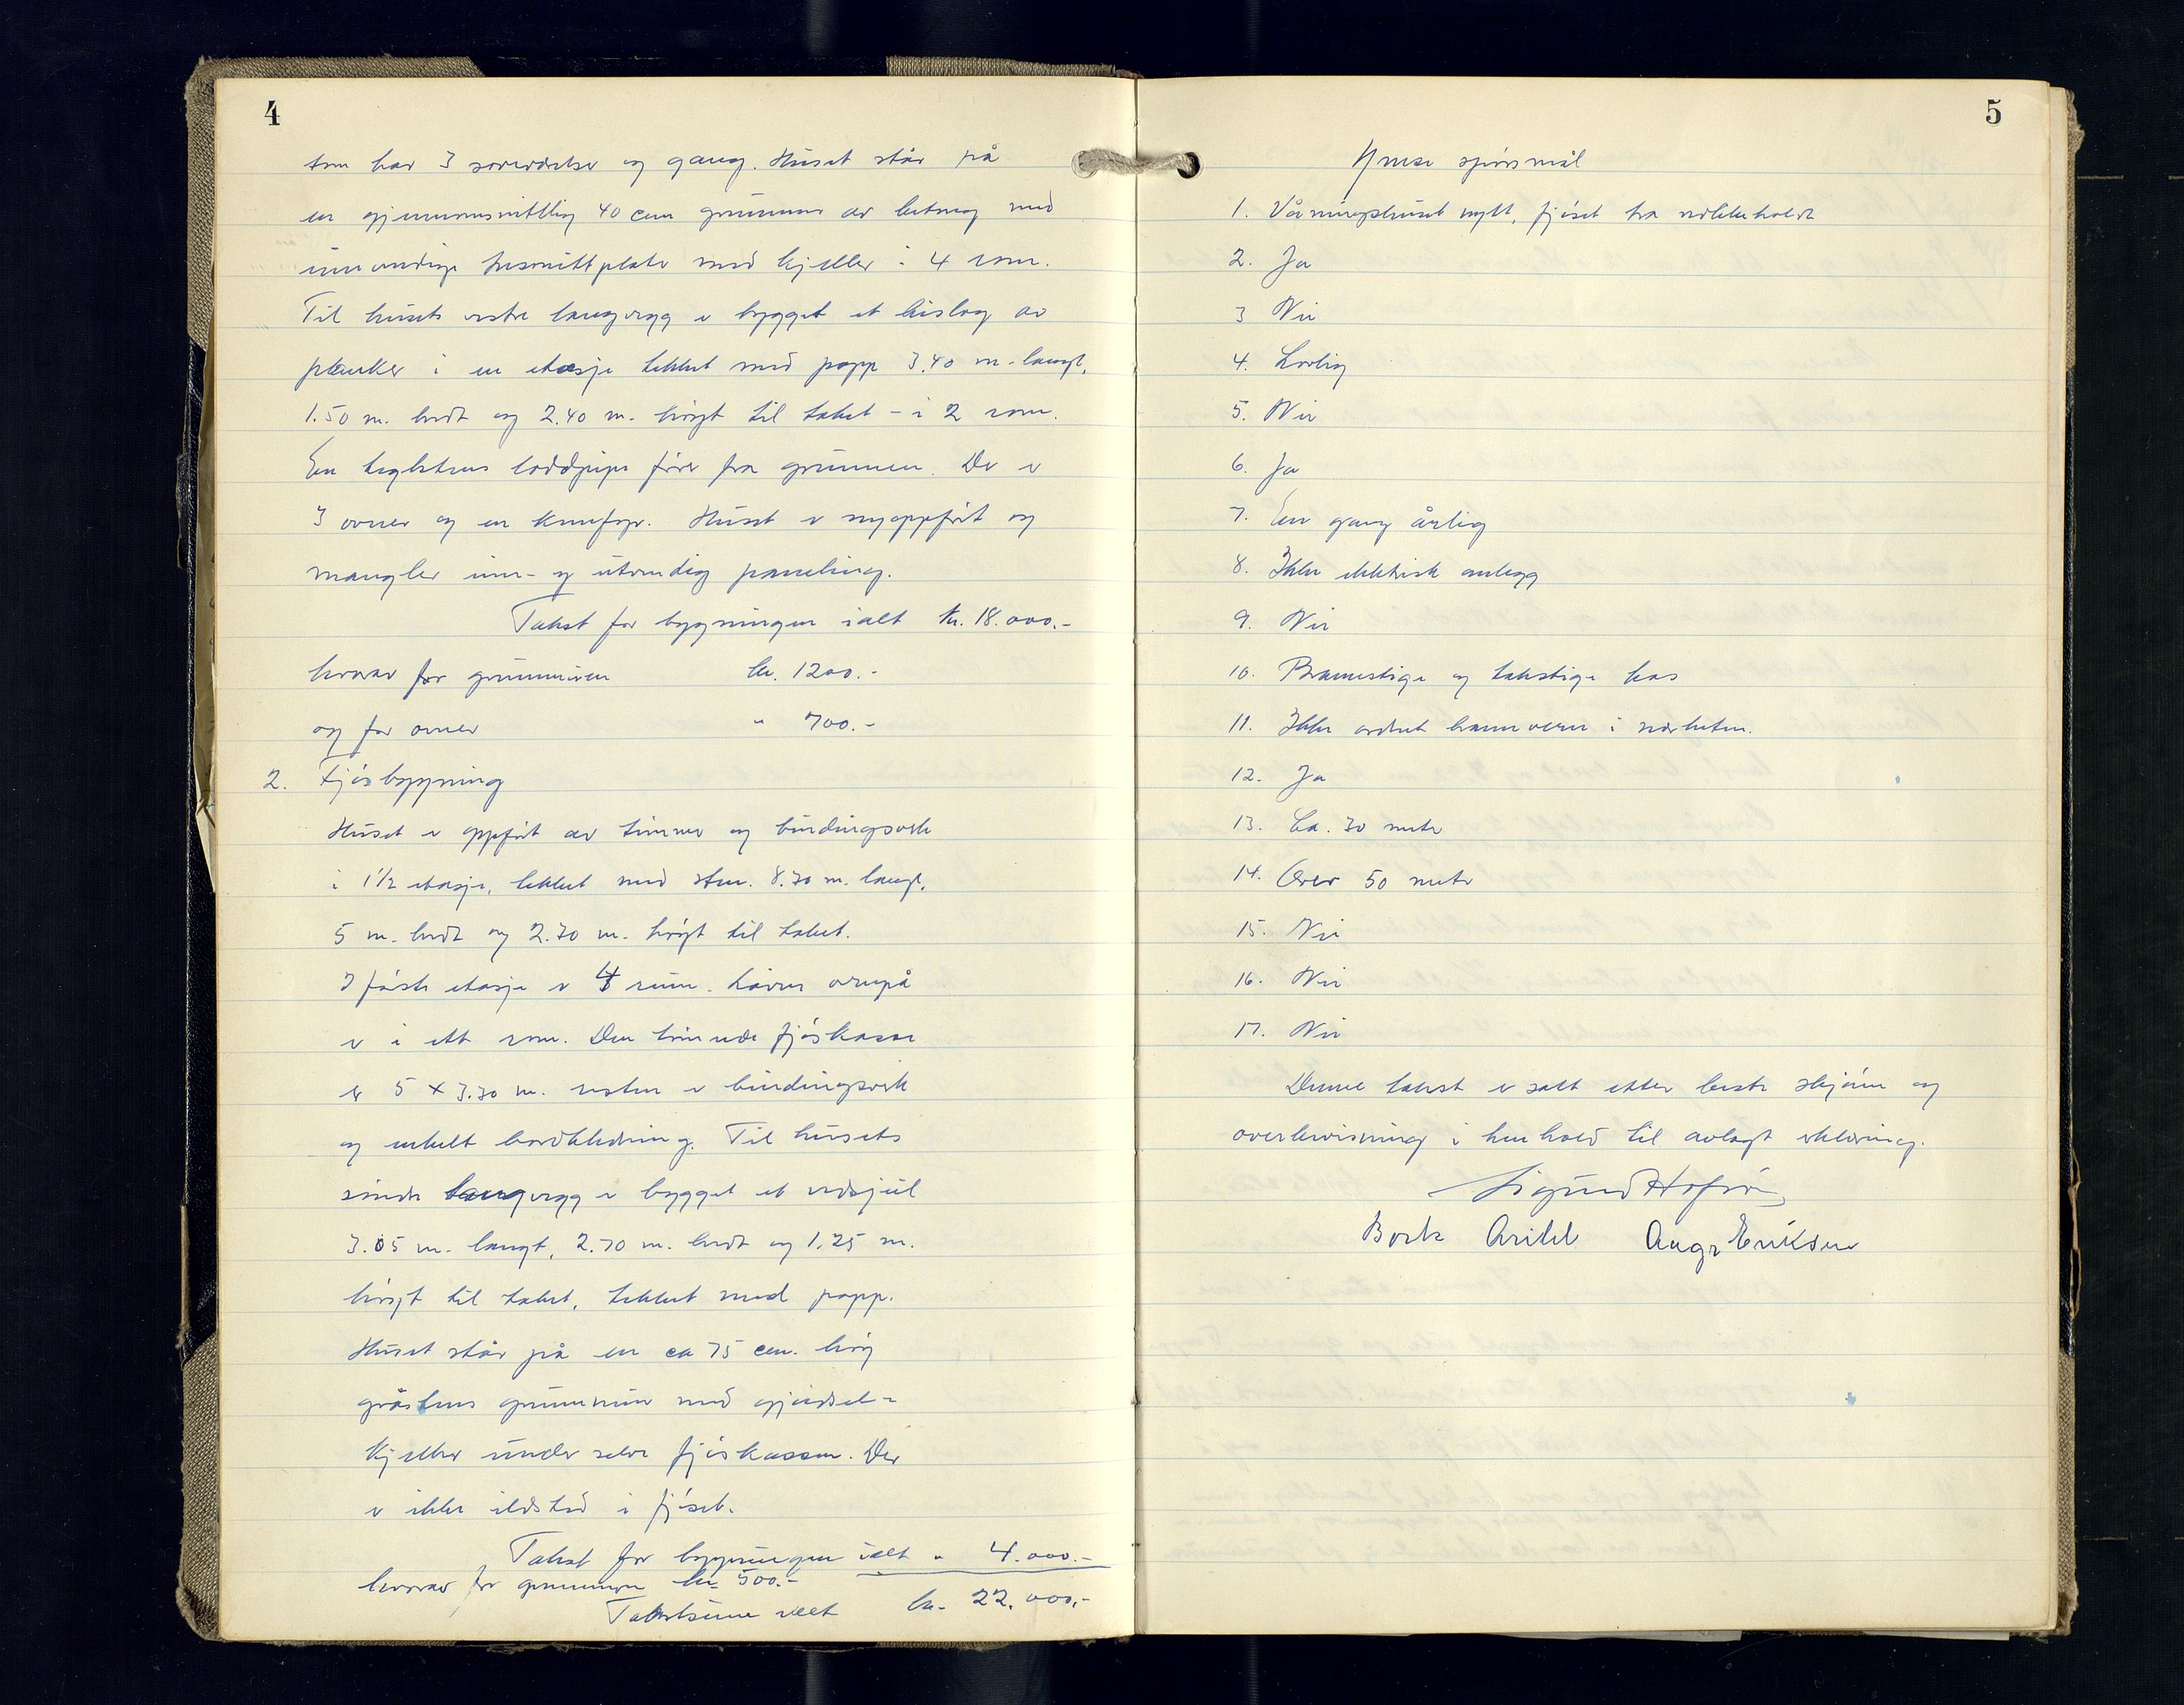 4
som har 3 soverværelser og gang. Huset står på
en gjennomsnittlig 40 cm grunnmur av betong med
innvendige tresonittplater med kjeller i 4 rom.
Til husets vestre langvegg er bygget et bislag av
planker i en etasje tekket med papp 3.40 m. langt,
1.50 m. bredt og 2.40 m. høgt til taket - i 2 rom.
En teglstens loddpipe fører fra grunnen. Der er
3 ovner og en komfyr. Huset er nyoppført og
mangler inn- og utvendig paneling.
Takst for bygningen ialt kr. 18.000.-
hvorav for grunnmuren kr. 1200.-
og for ovner " 700.-
2. Fjøsbygning
Huset er oppført av timmer og bindingsverk
i 1 1/2 etasje, tekket med sten. 8.30 m. langt,
5 m. bredt og 2.70 m. høgt til taket.
I første etasje er 4 rum. Låven ovenpå
er i ett rom. Den tømrede fjøskasse
er 5 x 3.30 m. resten er bindingsverk
og enkelt bordkledning. Til husets
søndre langvegg er bygget et vedsjul
3.05 m. langt, 2.70 m. bredt og 1.25 m.
høgt til taket, tekket med papp.
Huset står på en ca 75 cm. høg
gråstens grunnmur med gjødsel-
kjeller under selve fjøskassen. Der
er ikke ildsted i fjøset.
Takst for bygningen ialt " 4.000.-
hvorav for grunnmuren kr. 500.-
Takstsum ialt kr. 22.000.-
5
Ymse spørsmål
1. Våningshuset nytt, fjøset bra vedlikeholdt
2. Ja
3 Nei
4. Lovlig
5. Nei
6. Ja
7. En gang årlig
8. Ikke elektrisk anlegg
9. Nei
10. Brannstige og takstige has
11. Ikke ordnet brannvern i nærheten.
12. Ja
13. Ca. 30 meter
14. Over 50 meter
15. Nei
16. Nei
17. Nei
Denne takst er satt etter beste skjønn og
overbevisning i henhold til avlagt erklæring.
Sigurd
Aage Eriksen